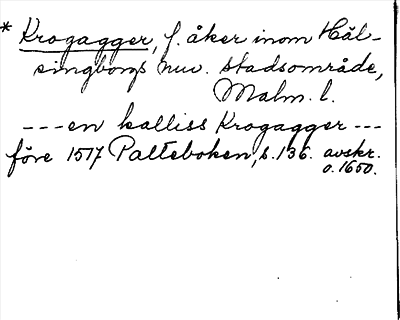 * Krogagger, f. åker inom Häl-
singborgs nuv. stadsområde,
Malm. l.
---en kalliss Krogagger---
före 1517 Palteboken, s. 136. avskr.
o. 1650.